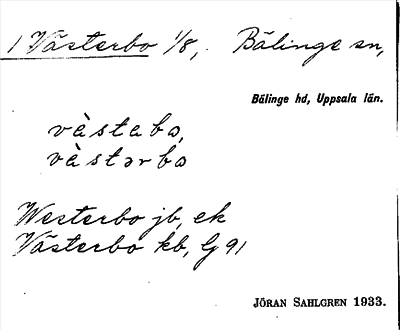 1 Västerbo 1/8, Bälinge sn,
Bälinge hd, Uppsala län.
vàstabo,
vàstərbo
Westerbo jb, ek
Västerbo kb, G 91
JÖRAN SAHLGREN 1933.